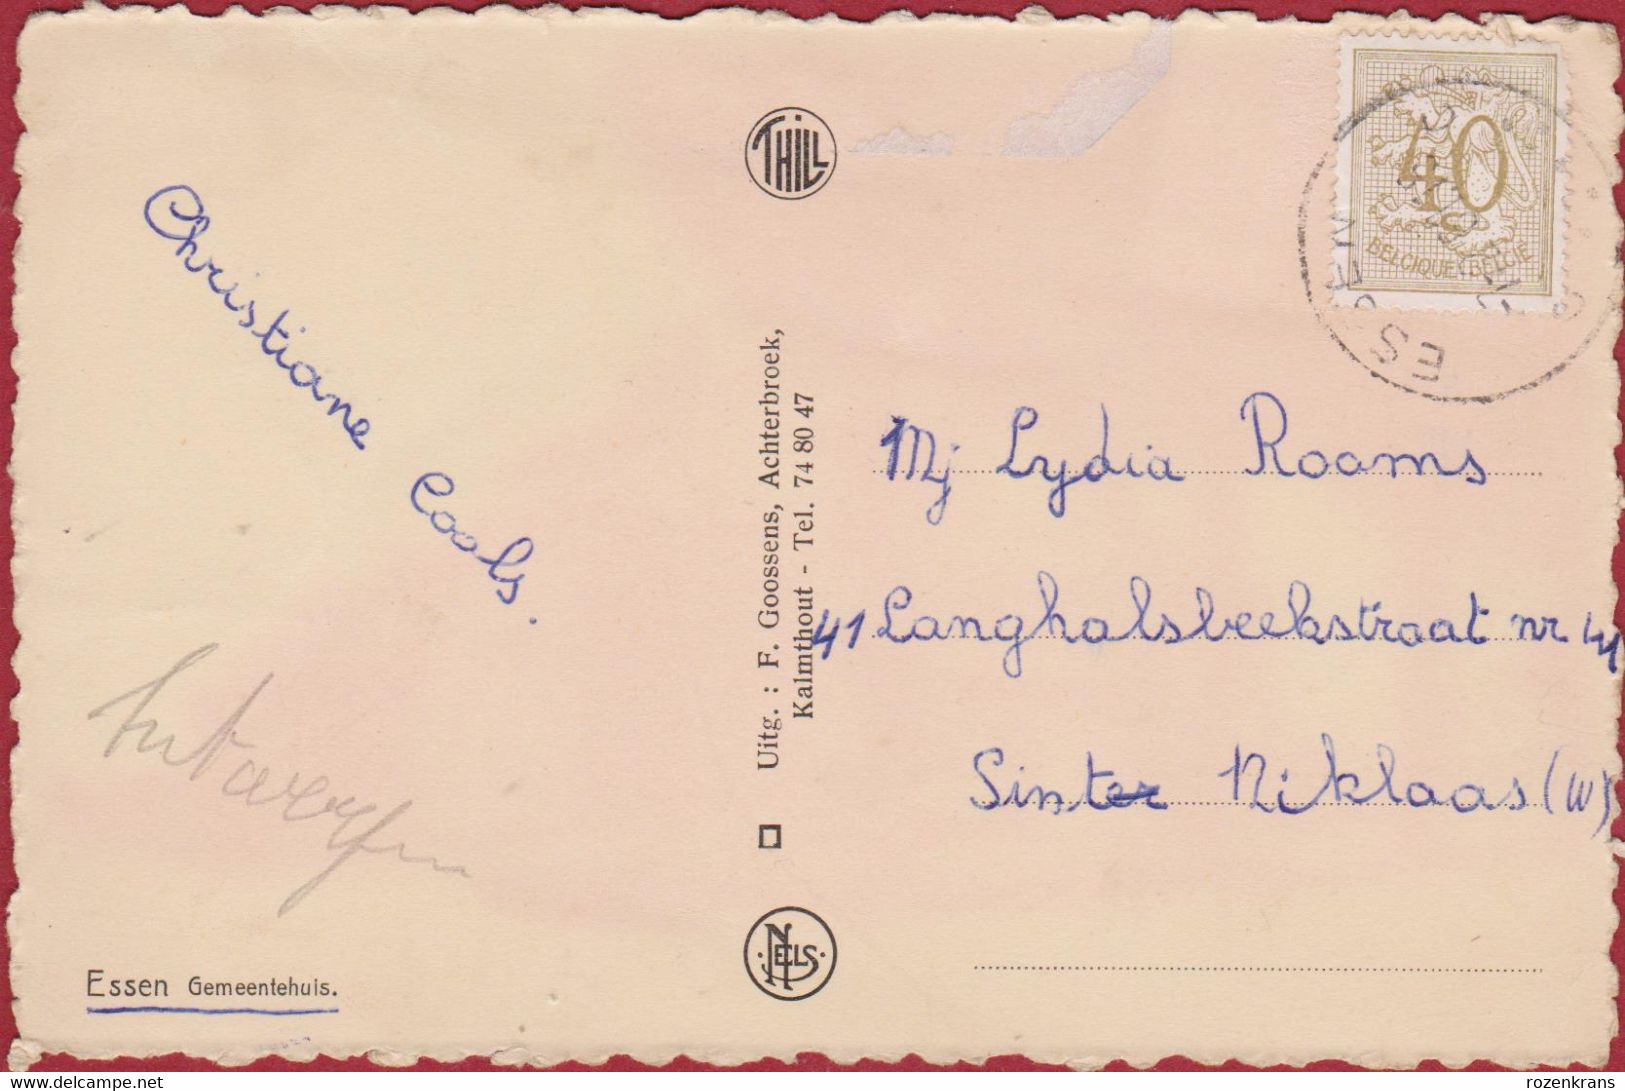 Christiane Cools.
Antwerpen
Essen Gemeentehuis.
THILL
Uitg. : F. Goossens, Achterbroek,
Kalmthout - Tel. 74 80 47
NELS
40
BELGIQUE BELGIË
ESSEN
Mj Lydia Rooms
41 Langhalsbeekstraat nr 41
Sinter Niklaas (W)
rozenkrans
www.delcampe.net